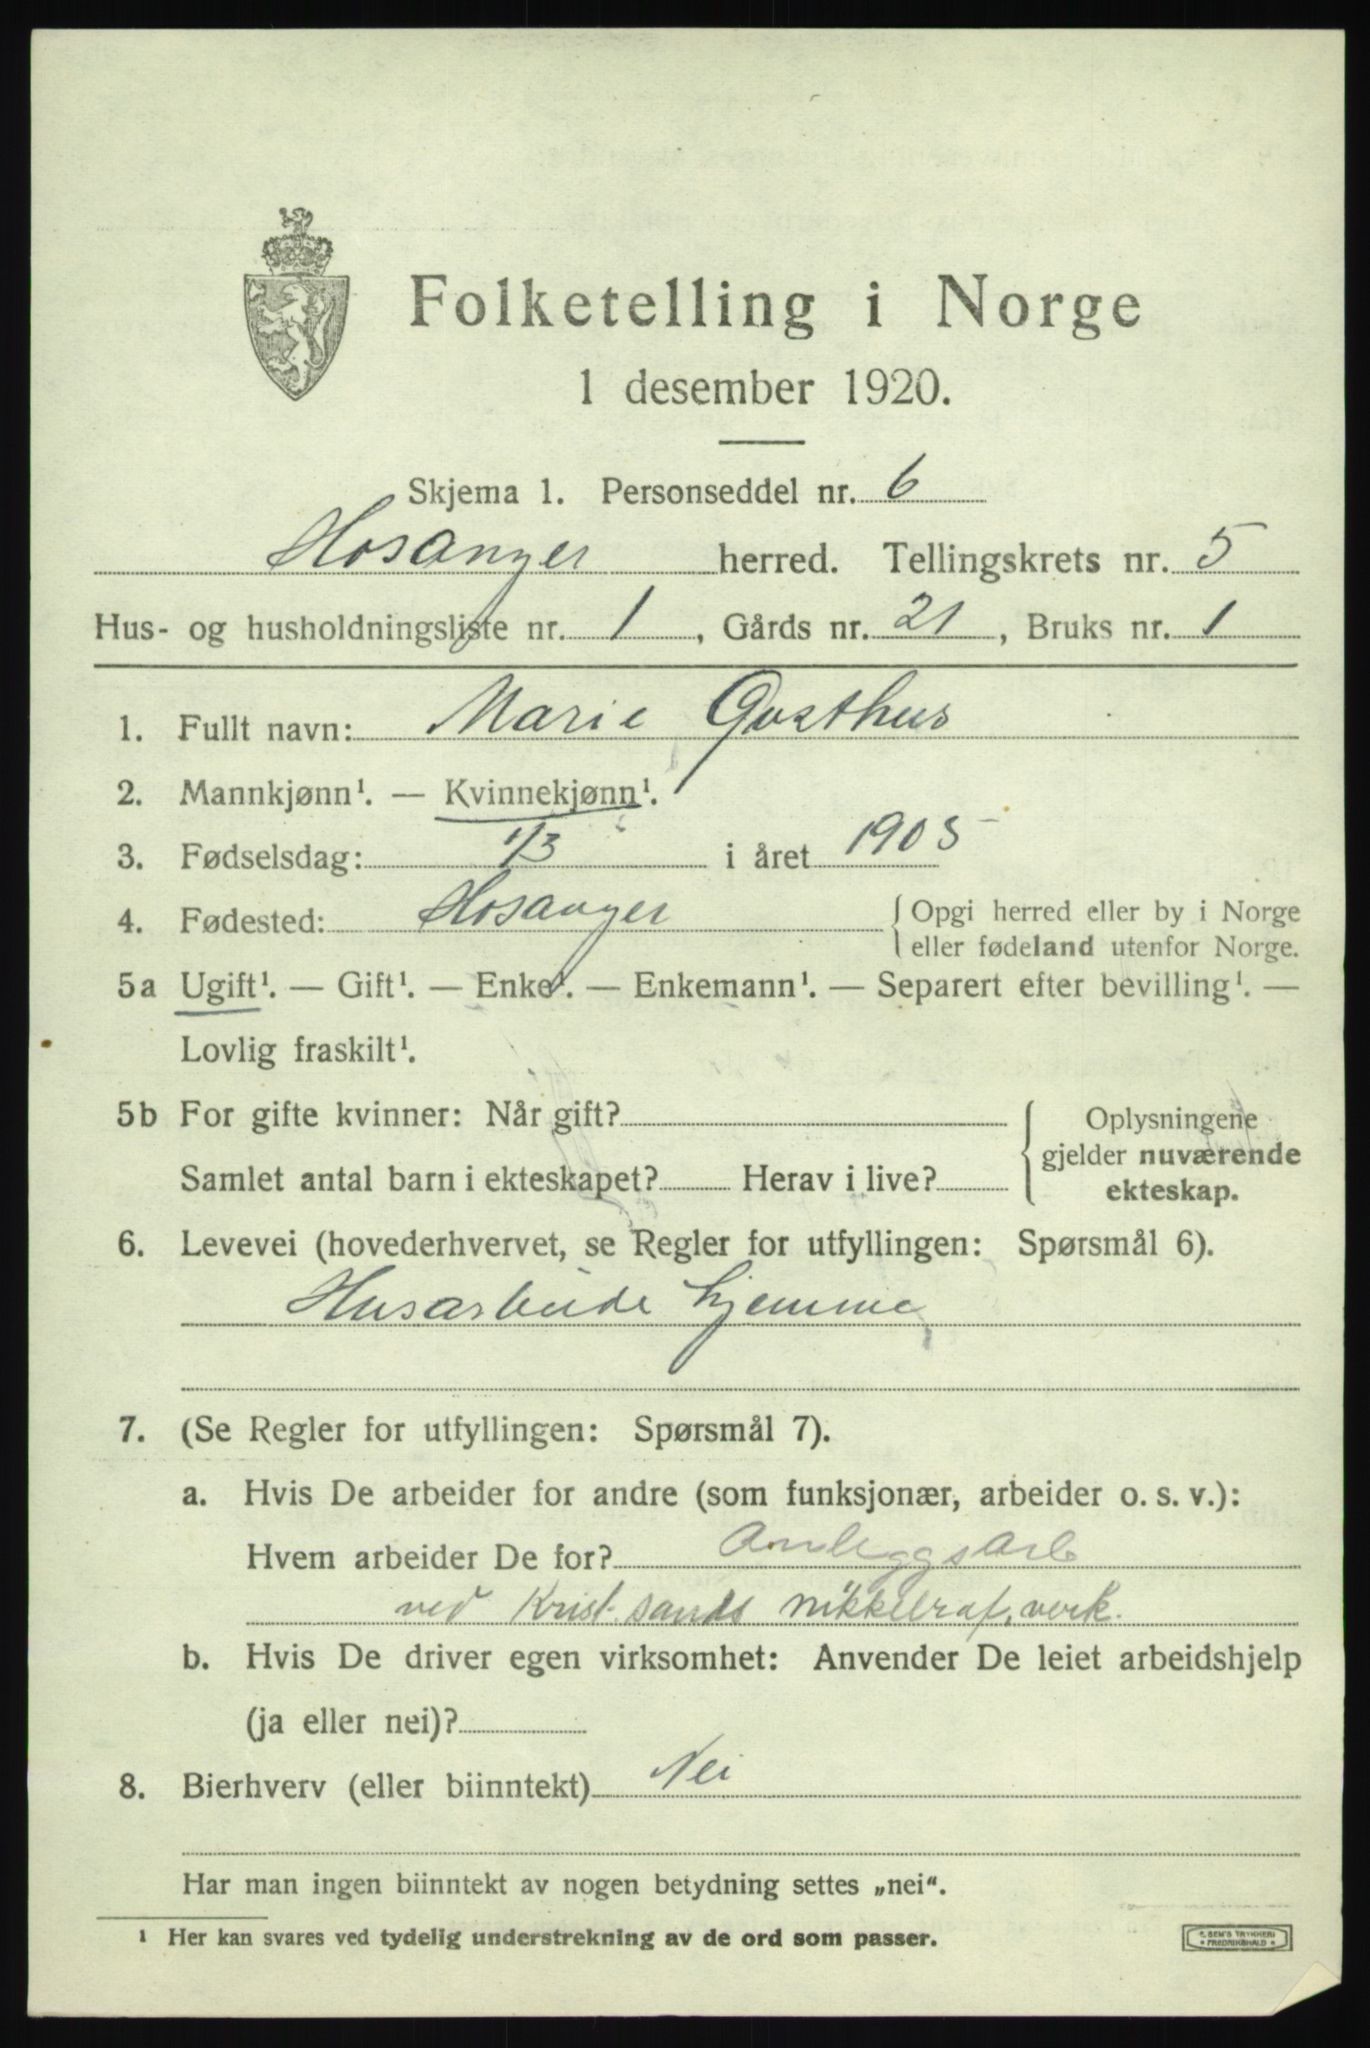 Folketelling i Norge
1 desember 1920.
Skjema 1. Personseddel nr. 6
Hosanger herred. Tellingskrets nr. 5
Hus- og husholdningsliste nr. 1, Gårds nr. 21, Bruks nr. 1
1. Fullt navn: Marie
2. Mannkjønn¹. — Kvinnekjønn¹.
3. Fødselsdag: 1/3 i året 1905
4. Fødested: Hosanger { Opgi herred eller by i Norge
eller fødeland utenfor Norge.
5a Ugift¹. — Gift¹. — Enke¹. — Enkemann¹. — Separert efter bevilling¹. —
Lovlig fraskilt¹.
5b For gifte kvinner: Når gift? { Oplysningene
gjelder nuværende
Samlet antal barn i ekteskapet? Herav i live? ekteskap.
6. Levevei (hovederhvervet, se Regler for utfyllingen: Spørsmål 6).
Husarbeide hjemme
7. (Se Regler for utfyllingen: Spørsmål 7).
a. Hvis De arbeider for andre (som funksjonær, arbeider o. s. v.):
Hvem arbeider De for? Anleggsarb
ved Krist.sands nikkelraf.verk.
b. Hvis De driver egen virksomhet: Anvender De leiet arbeidshjelp
(ja eller nei)?
8. Bierhverv (eller biinntekt) Nei
Har man ingen biinntekt av nogen betydning settes „nei“.
¹ Her kan svares ved tydelig understrekning av de ord som passer.
E. SEM'S TRYKKERI
FREDRIKSHALD